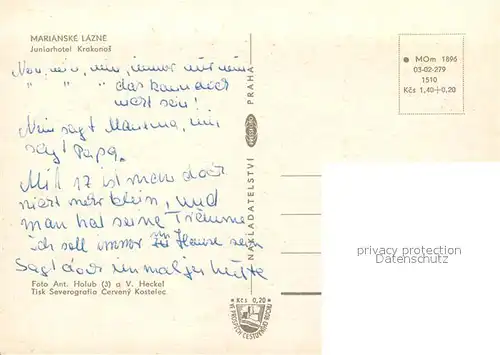 MARIÁNSKÉ LÁZNĚ
Juniorhotel Krakonoš
immer nur nein
" " " das kann doch
nicht sein!
Nein sagt Mamma, nein
sagt Papa.
Mit 17 ist man doch
nicht mehr klein, und
man hat seine Träume
ich soll immer zu Hause sein
Sagt doch einmal ja heute
Foto Ant. Holub (3) a V. Heckel
Tisk Severografia Červený Kostelec
NAKLADATELSTVÍ PRAHA
MOm 1896
03-02-279
1510
Kčs 1,40+0,20
privacy protection
www.ansichtskartenversand.com
Kčs 0,20
VE PROSPĚCH CESTOVNÍHO RUCHU